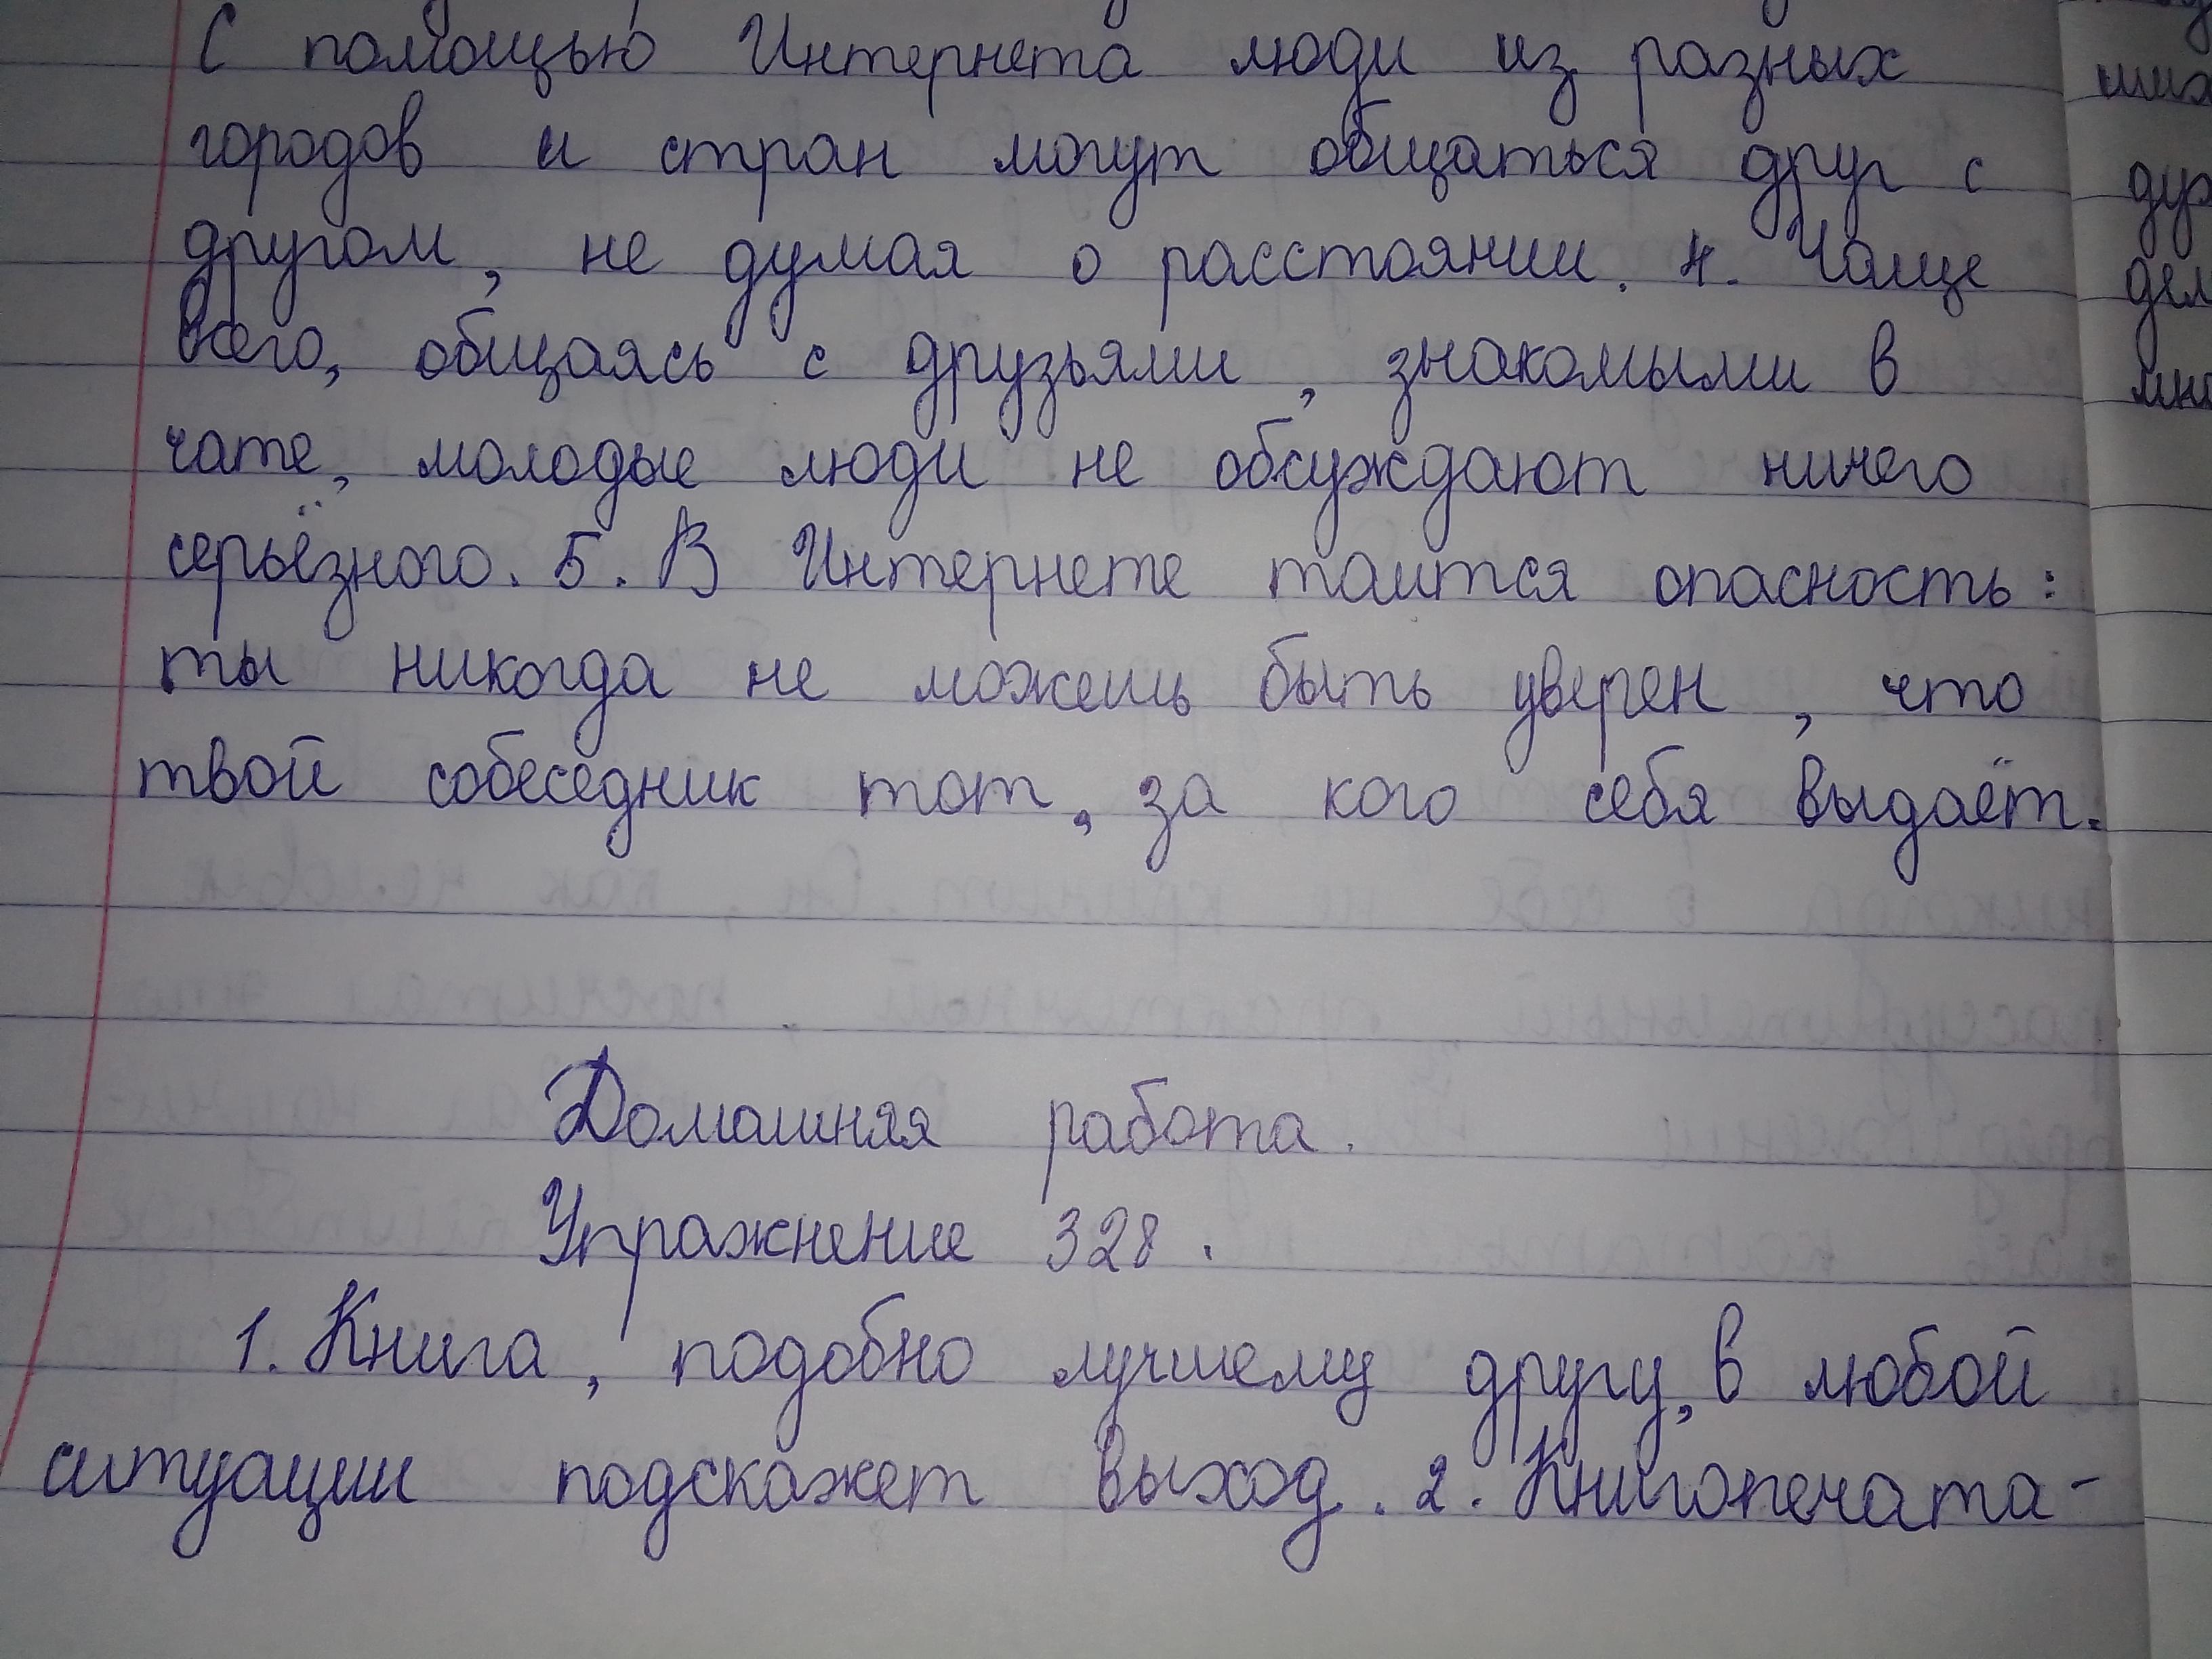 С помощью Интернета люди из разных
городов и стран могут общаться друг с
другом, не думая о расстоянии. 4. Чаще
всего, общаясь с друзьями, знакомыми в
чате, молодые люди не обсуждают ничего
серьёзного. 5. В Интернете таится опасность:
ты никогда не можешь быть уверен, что
твой собеседник тот, за кого себя выдаёт.
Домашняя работа.
Упражнение 328.
1. Книга, подобно лучшему другу, в любой
ситуации подскажет выход. 2. Книгопечата-